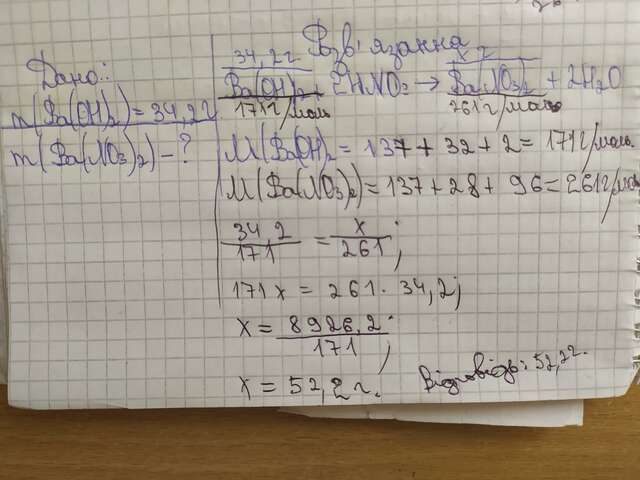 Дано:
m(Ba(OH)₂)=34,2г
m(Ba(NO₃)₂)-?
Розв'язання
34,2г x г
Ba(OH)₂ + 2HNO₃ → Ba(NO₃)₂ + 2H₂O
171г/моль 261г/моль
M(Ba(OH)₂ = 137 + 32 + 2 = 171г/моль.
M(Ba(NO₃)₂)=137+28+96=261г/моль
34,2/171 = x/261;
171x = 261 · 34,2;
x = 8926,2/171;
x = 52,2г.
Відповідь: 52,2г.